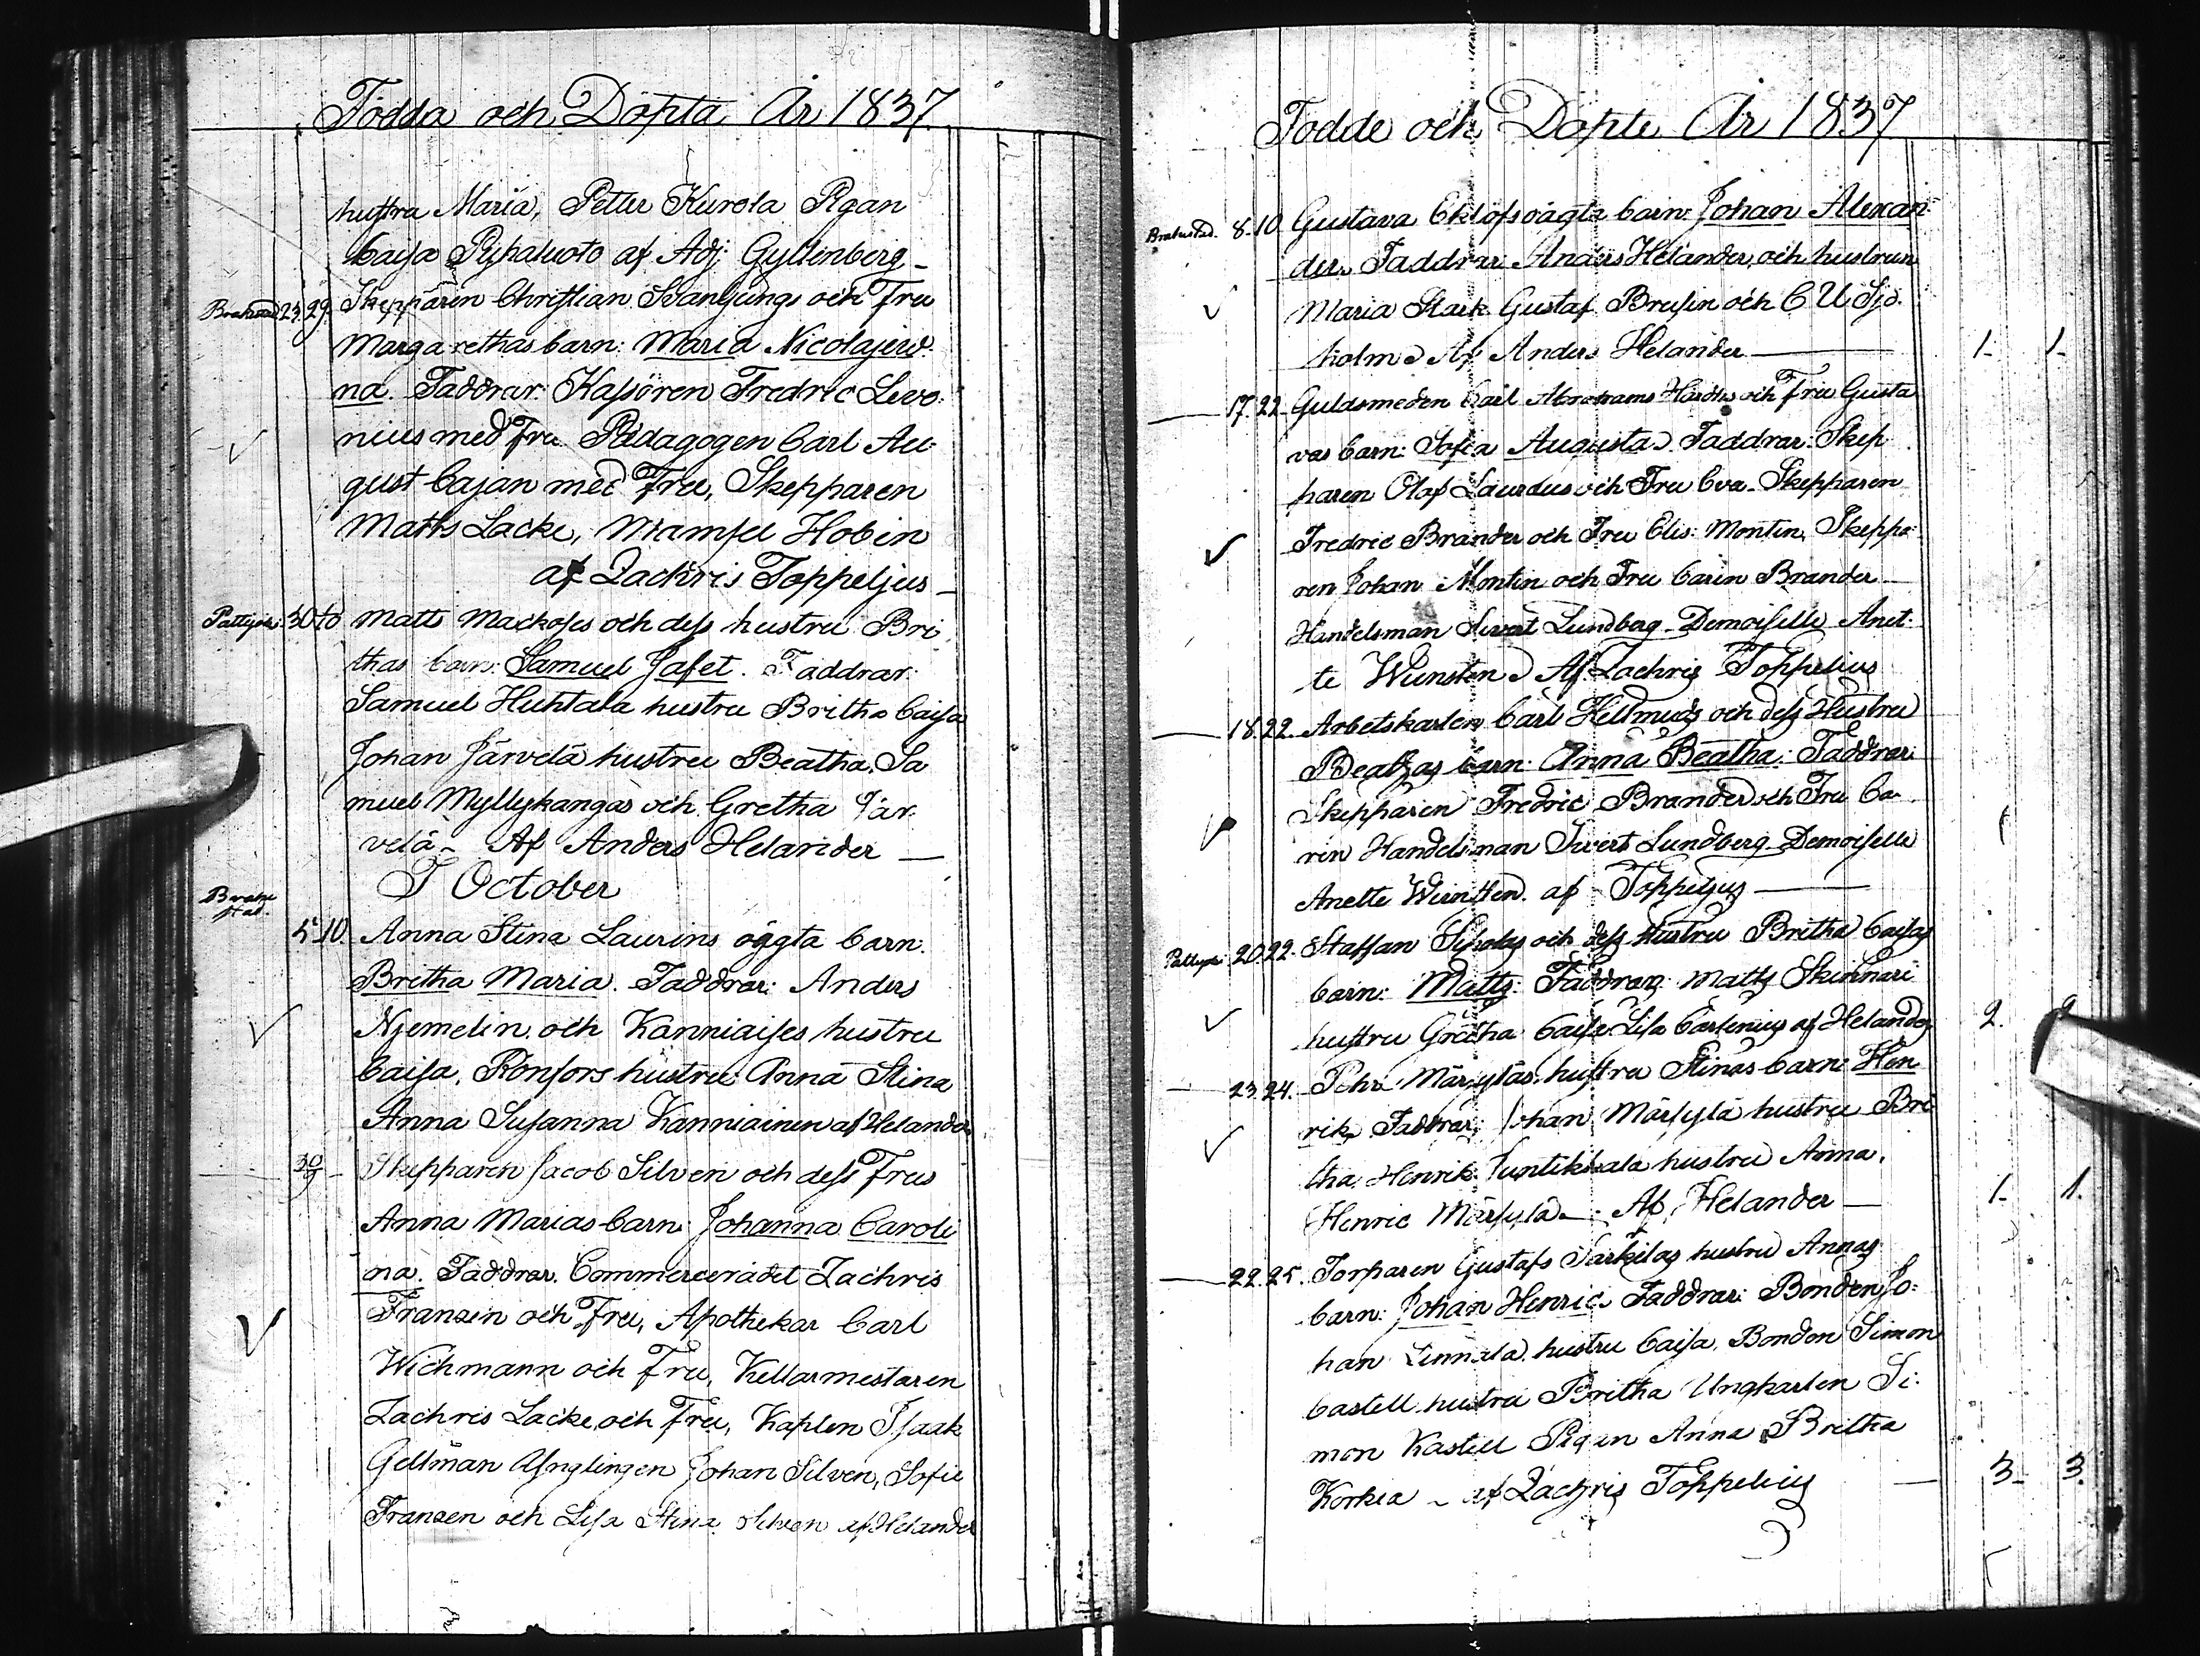 Födda och Döpta År 1837
hustru Maria, Petter Kurola Pigan
Caisa Pyhaluoto af Adj: Gyllenberg
Brahestad 23. 29. Skepparen Christian Svanljungs och Fru
Margarethas barn: Maria Nicolajew-
na. Faddrar: Kassören Fredric Levo-
nius med Fru Pädagogen Carl Au-
gust Cajan med Fru, Skepparen
Matts Lacke, Mamsel Hobin
af Zachris Toppeljus
Pattijoki 30 10 Matts Mackoses och dess hustru Bri-
thas barn: Samuel Jafet. Faddrar:
Samuel Huhtala hustru Britha Caisa
Johan Järvelä hustru Beatha, Sa
muel Myllykangas och Gretha Jär-
velä - Af Anders Helander
I October
Brahestad.
5. 10. Anna Stina Laurins oägta barn.
Britha Maria. Faddrar: Anders
Njemelin och Kanniaises hustru
Caisa, Rönfors hustru Anna Stina
Anna Susanna Kanniainen af Helander
30/9 Skepparen Jacob Silven och dess Frus
Anna Marias barn: Johanna Caroli
na. Faddrar. Commercerådet Zachris
Franzen och Fru, Apothekar Carl
Wichmann och Fru, Kellarmestaren
Zachris Lacke och Fru, Kaplen Isaak
Gellman Ynglingen Johan Silven, Sofie
Franzen och Lisa Stina Silven af Helander
Födde och Döpte År 1837
Brahestad. 8. 10 Gustava Eklöfs oägta barn: Johan Alexan-
der. Faddrar Anders Helander, och hustrun
Maria Stark Gustaf Brusin och C U Sjö-
holm. Af Anders Helander 1. 1.
17. 22. Guldsmeden Carl Abrahams och Fru Gusta
vas barn: Sofia Augusta. Faddrar: Skep
paren Olaf Laurdus och Fru Eva. Skepparen
Fredric Brander och Fru Elis: Montin, Skeppa-
ren Johan Montin och Fru Carin Brander
Handelsman Sivert Lundberg Demoiselle Anet-
te Wunsten. Af Zachris Toppelius
18. 22. Arbetskarlen Carl Hellmuds och dess Hustru
Beathas barn: Anna Beatha. Faddrar:
Skepparen Fredric Brander och Fru Ca-
rin Handelsman Sivert Lundberg Demoiselle
Anette Wunsten. af Toppeljus
Pattijoki 20. 22. Staffan och dess Hustru Britha Caisas
barn: Matts. Faddrar: Matts Skinnari
hustru Gretha Caisa Lisa Carlenius af Helander 2. 2
23. 24. Pehr Märsyläs hustru Stinas barn: Hen
rik. Faddrar: Johan Märsylä hustru Bri
tha. Henrik hustru Anna.
Henric Märsylä. Af Helander 1. 1.
22. 25. Torparen Gustafs Särkilas hustru Annas
barn: Johan Henric. Faddrar: Bonden Jo-
han Linnala hustru Caisa, Bonden Simon
Castell hustru Britha Ungkarlen Si-
mon Kastell Pigan Anna Britha
Korkia - af Zachris Toppelius 3. 3.